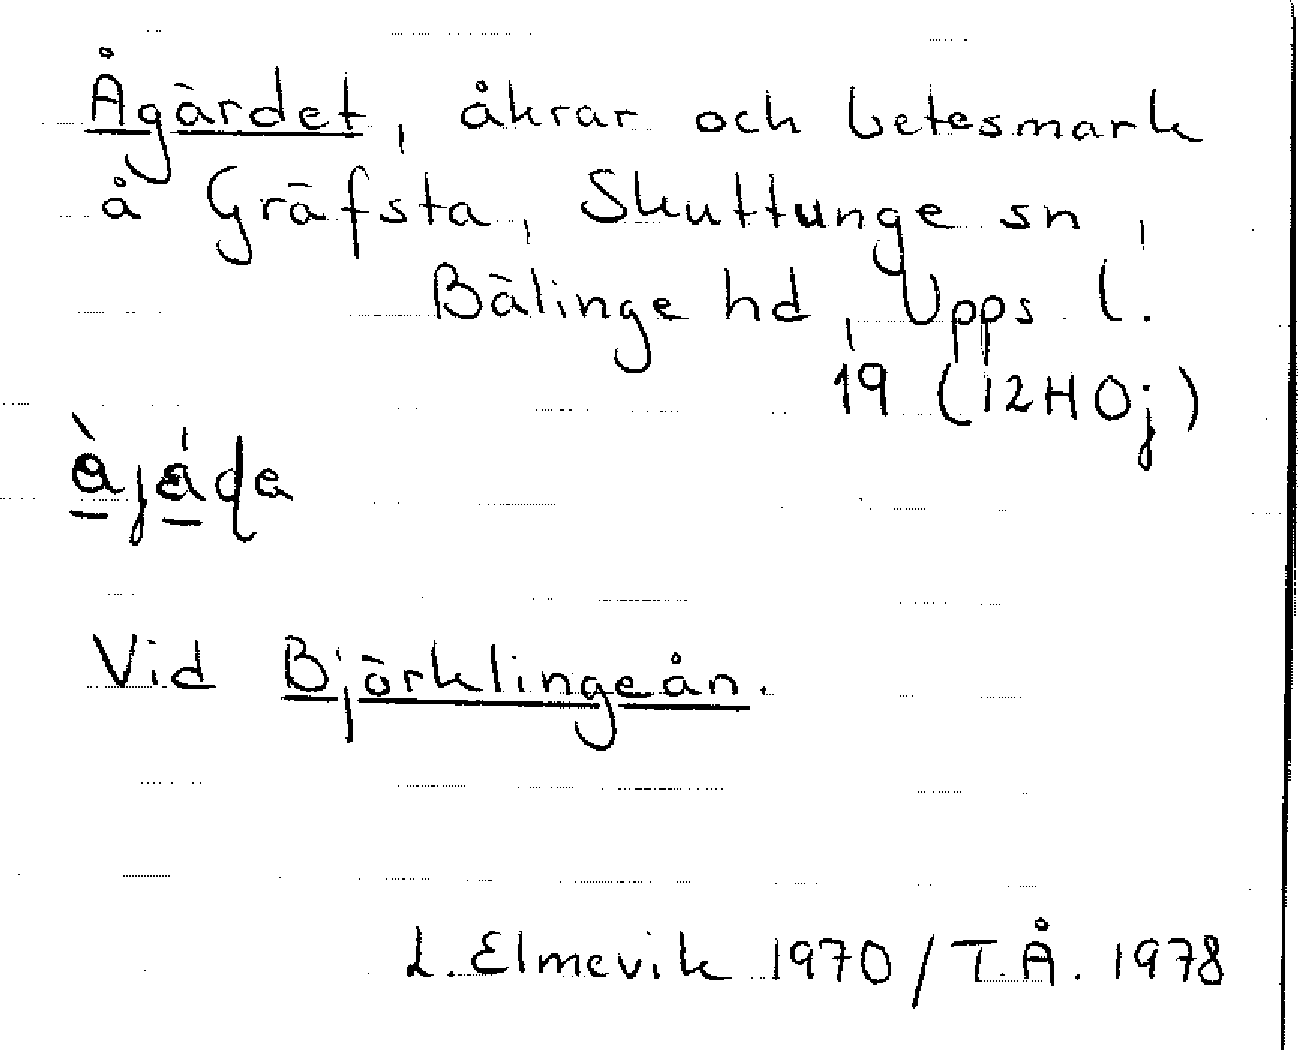 Ågärdet, åkrar och betesmark
å Gräfsta, Skuttunge sn,
Bälinge hd, Upps l.
19 (12H0j)
Vid Björklingeån.
L. Elmevik 1970/T.Å. 1978